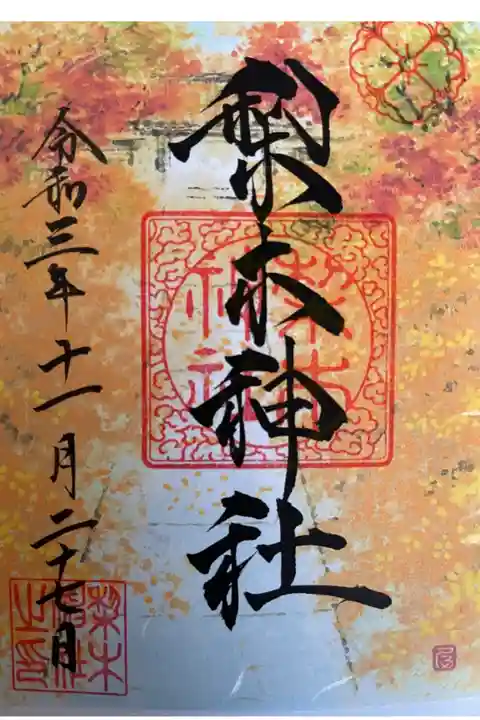 梨木神社
梨木
神社
令和三年十一月二十七日
梨木
神社
之印